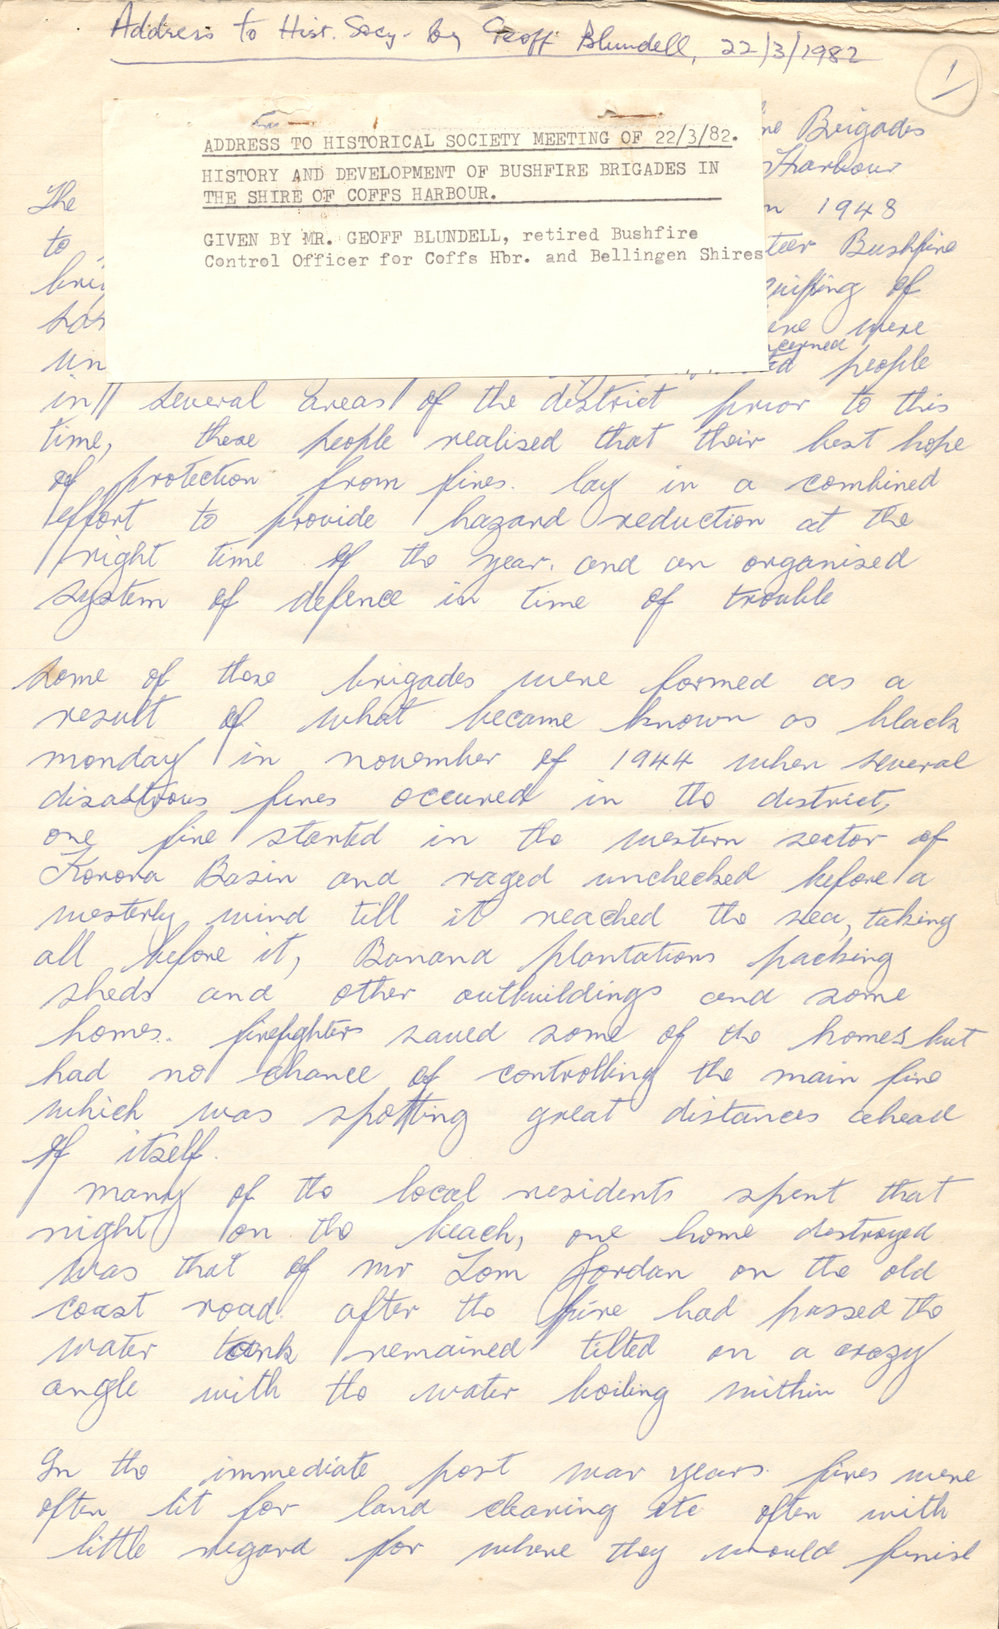 Address to Hist. Socy. by Geoff Blundell, 22/3/1982
1
ADDRESS TO HISTORICAL SOCIETY MEETING OF 22/3/82.
HISTORY AND DEVELOPMENT OF BUSHFIRE BRIGADES IN
THE SHIRE OF COFFS HARBOUR.
GIVEN BY MR. GEOFF BLUNDELL, retired Bushfire
Control Officer for Coffs Hbr. and Bellingen Shires
Brigades
Harbour
The 1948
to Bushfire
of
were
un cerned people
in several areas of the district prior to this
time, these people realised that their best hope
of protection from fires lay in a combined
effort to provide hazard reduction at the
right time of the year. and an organised
system of defence in time of trouble
some of these brigades were formed as a
result of what became known as black
monday in november of 1944 when several
disastrous fires occured in the district,
one fire started in the western sector of
Korora Basin and raged unchecked before a
westerly wind till it reached the sea, taking
all before it, Banana plantations packing
sheds and other outbuildings and some
homes. firefighters saved some of the homes but
had no chance of controlling the main fire
which was spotting great distances ahead
of itself.
many of the local residents spent that
night on the beach, one home destroyed
was that of mr Lom Jordan on the old
coast road. after the fire had passed the
water tank remained tilted on a crazy
angle with the water boiling within
In the immediate post war years. fires were
often lit for land clearing etc often with
little regard for where they would finish